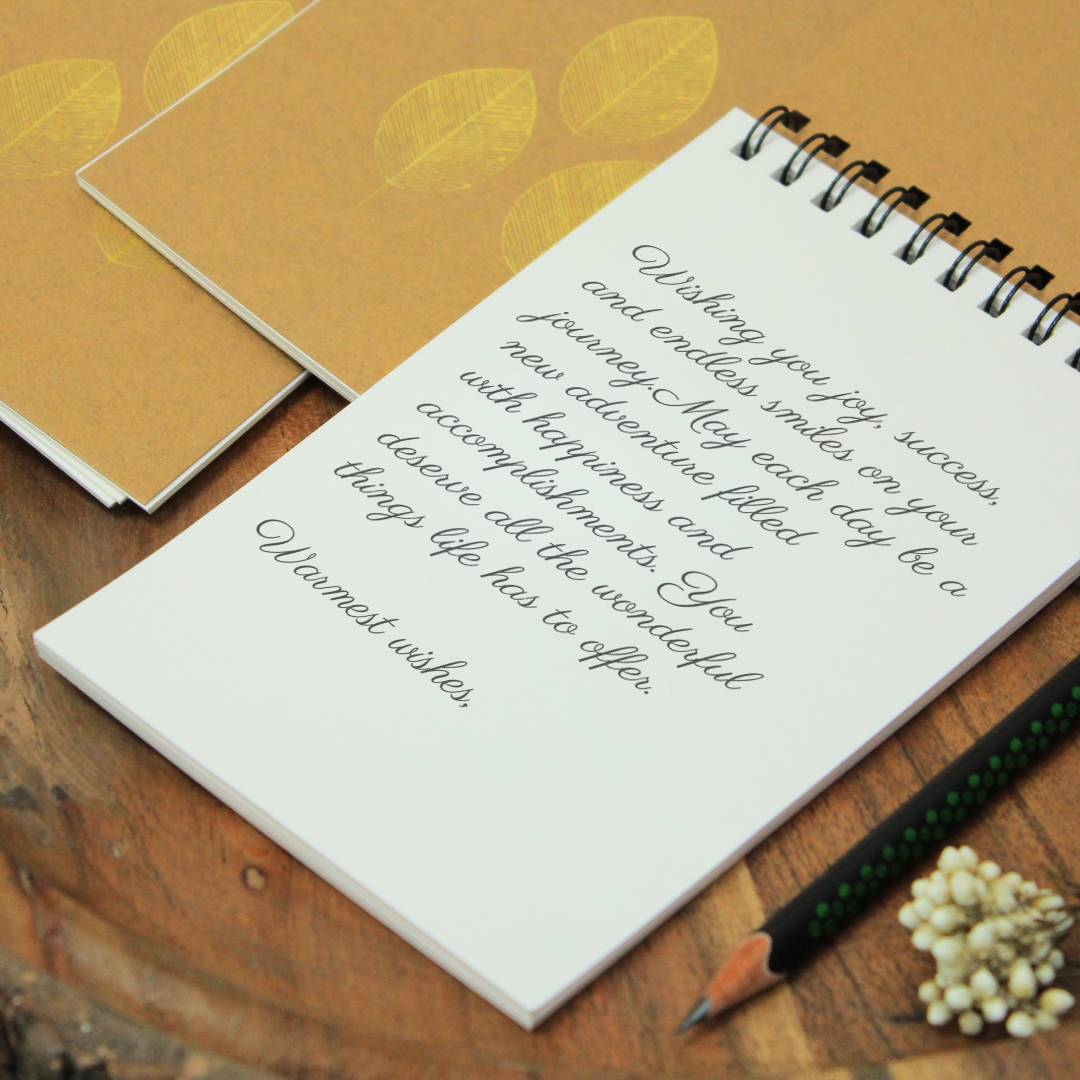 Wishing you joy, success,
and endless smiles on your
journey.May each day be a
new adventure filled
with happiness and
accomplishments. You
deserve all the wonderful
things life has to offer.
Warmest wishes,